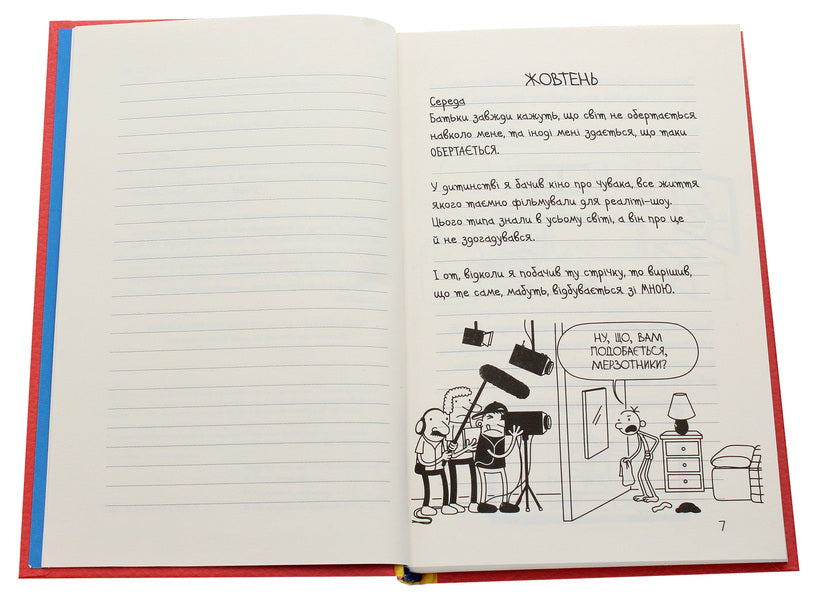 ЖОВТЕНЬ
Середа
Батьки завжди кажуть, що світ не обертається
навколо мене, та іноді мені здається, що таки
ОБЕРТАЄТЬСЯ.
У дитинстві я бачив кіно про чувака, все життя
якого таємно фільмували для реаліті-шоу.
Цього типа знали в усьому світі, а він про це
й не здогадувався.
І от, відколи я побачив ту стрічку, то вирішив,
що те саме, мабуть, відбувається зі МНОЮ.
НУ, ЩО, ВАМ
ПОДОБАЄТЬСЯ,
МЕРЗОТНИКИ?
7